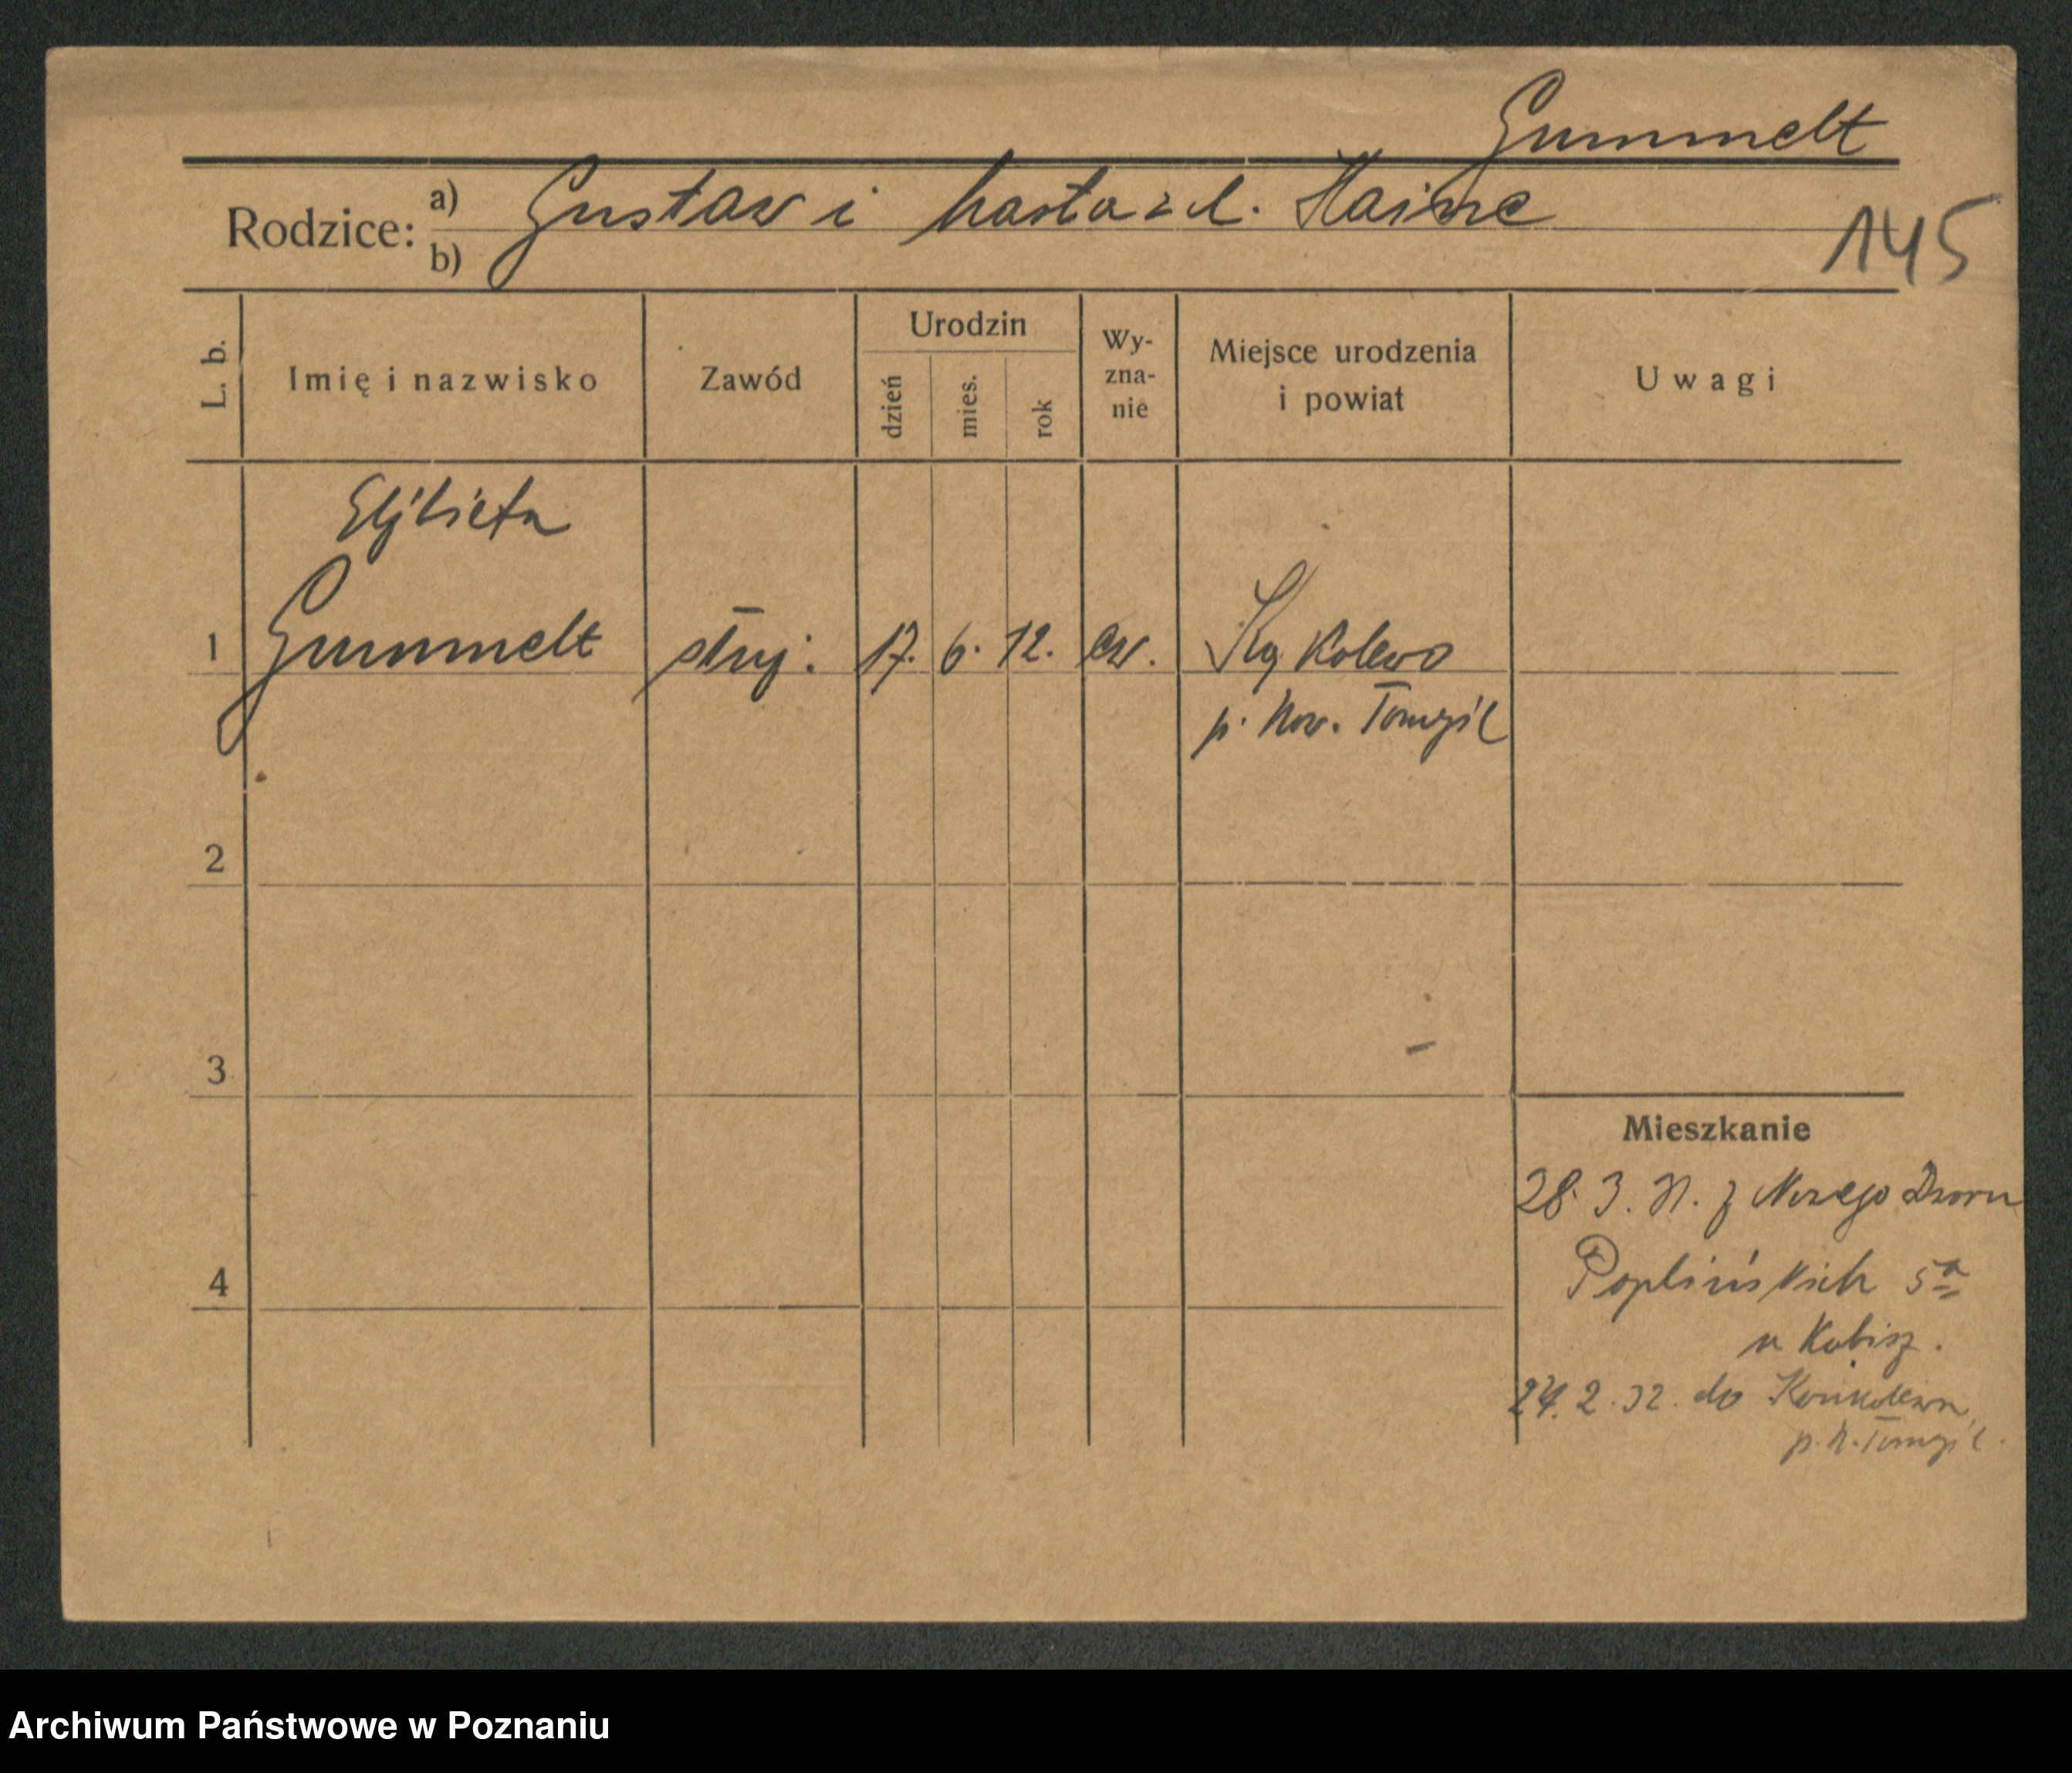 Gummelt
Rodzice: a) Gustaw i Marta z d. Hainze
b)
145
L. b. Imię i nazwisko Zawód Urodzin dzień mies. rok Wy-zna-nie Miejsce urodzenia i powiat Uwagi
Elżbieta
1 Gummelt służ. 17. 6. 12. ew. Kąkolewo
p. Now. Tomyśl
2
3
4
Mieszkanie
28. 3. 31. z Nowego Dworu
Poplińskich 5a
u Kabisz.
24. 2. 32. do Konkolewa
p. N. Tomyśl.
Archiwum Państwowe w Poznaniu